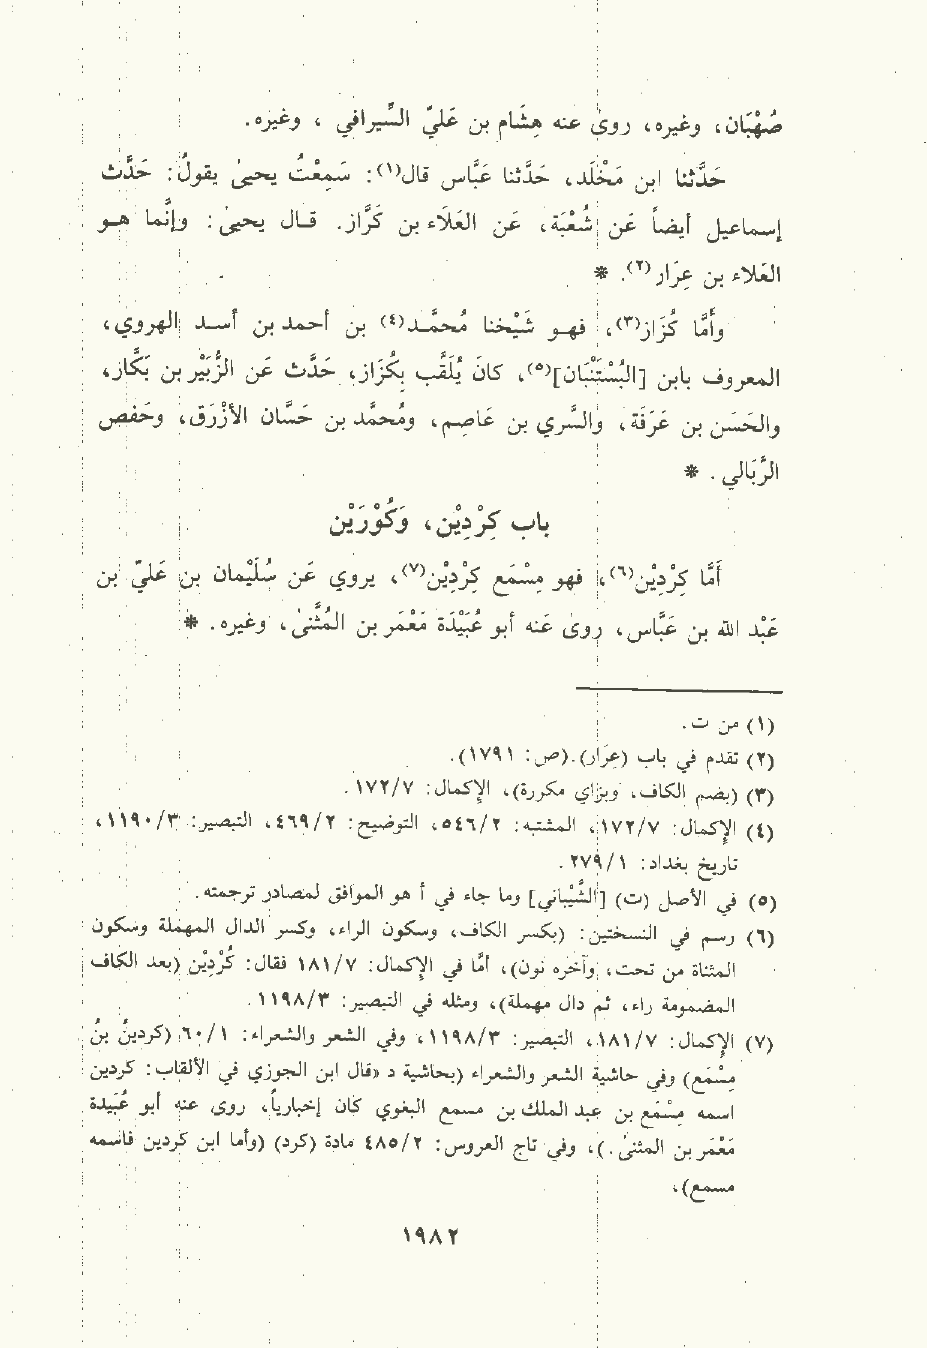 صُهْبَان، وغيره، روىٰ عنه هِشَام بن عَليّ السِّيرافي ، وغيره.
حَدَّثنا ابن مَخْلَد، حَدَّثنا عَبَّاس قال(١): سَمِعْتُ يحيىٰ يقولُ: حَدَّث
إسماعيل أيضاً عَن شُعْبَة، عَن العَلاَء بن كَرَّاز. قـال يحيىٰ: وإنَّما هـو
العَلاء بن عِرَار(٢). *
وأمَّا كُزَاز(٣)، فهـو شَيْخنا مُحمَّـد(٤) بن أحمد بن أسـد الهروي،
المعروف بابن [البُسْتَنْبَان](٥)، كَانَ يُلَقَّب بِكُزَاز، حَدَّث عَن الزُّبَيْر بن بَكَّاز،
والحَسَن بن عَرَفَة، والسَّري بن عَاصِم، ومُحمَّد بن حَسَّان الأزْرَق، وحَفص
الرَّبَالي . *
باب كِرْدِيْن، وَكُوْرَيْن
أمَّا كِرْدِيْن(٦)، فهو مِسْمَع كِرْدِيْن(٧)، يروي عَن سُلَيْمان بن عَليّ بن
عَبْد الله بن عَبَّاس، روىٰ عَنه أبو عُبَيْدَة مَعْمَر بن المُثَنَّىٰ، وغيره. *
(١) من ت.
(٢) تقدم في باب (عِرَار).(ص: ١٧٩١).
(٣) (بضم الكاف، وبزاي مكررة)، الإكمال: ١٧٢/٧.
(٤) الإكمال: ١٧٢/٧، المشتبه: ٥٤٦/٢، التوضيح: ٤٦٩/٢، التبصير: ١١٩٠/٣،
تاريخ بغداد: ٢٧٩/١ .
(٥) في الأصل (ت) [الشَّيْباني] وما جاء في أ هو الموافق لمصادر ترجمته.
(٦) رسم في النسختين: (بكسر الكاف، وسكون الراء، وكسر الدال المهملة وسكون
المثناة من تحت، وآخره نون)، أمَّا في الإكمال: ١٨١/٧ فقال: كُرْدِيْن (بعد الكاف
المضمومة راء، ثم دال مهملة)، ومثله في التبصير: ١١٩٨/٣.
(٧) الإكمال: ١٨١/٧، التبصير: ١١٩٨/٣، وفي الشعر والشعراء: ٦٠/١، (كردينُ بنُ
مِسْمَع) وفي حاشية الشعر والشعراء (بحاشية د «قال ابن الجوزي في الألقاب: كردين
اسمه مِسْمَع بن عبد الملك بن مسمع البغوي كان إخبارياً، روى عنه أبو عُبَيدة
مَعْمَر بن المثنىٰ.)، وفي تاج العروس: ٤٨٥/٢ مادة (كرد) (وأما ابن كردين فاسمه
مسمع)،
١٩٨٢